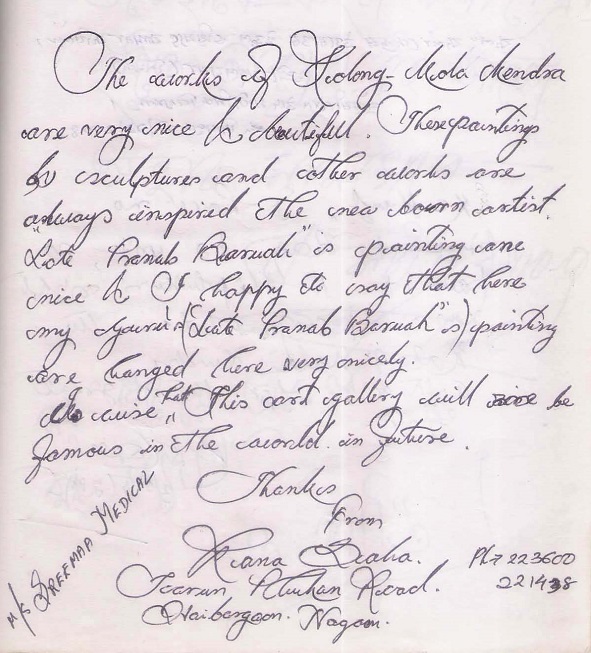 The works of Kolong-Mola Mendra
are very nice & beautiful. These paintings
& sculptures and other works are
always inspired the new bourn artist.
"Late Pranab Baruah" is painting are
nice & I happy to say that here
my guru's (Late Pranab Baruah"s) painting
are hanged here very nicely.
wise that This art gallery will be
famous in the world in future.
Thanks
From
Saha.
Road.
Haibargaon. Nagaon.
Ph- 223600
221438
M/S SREEMAA MEDICAL